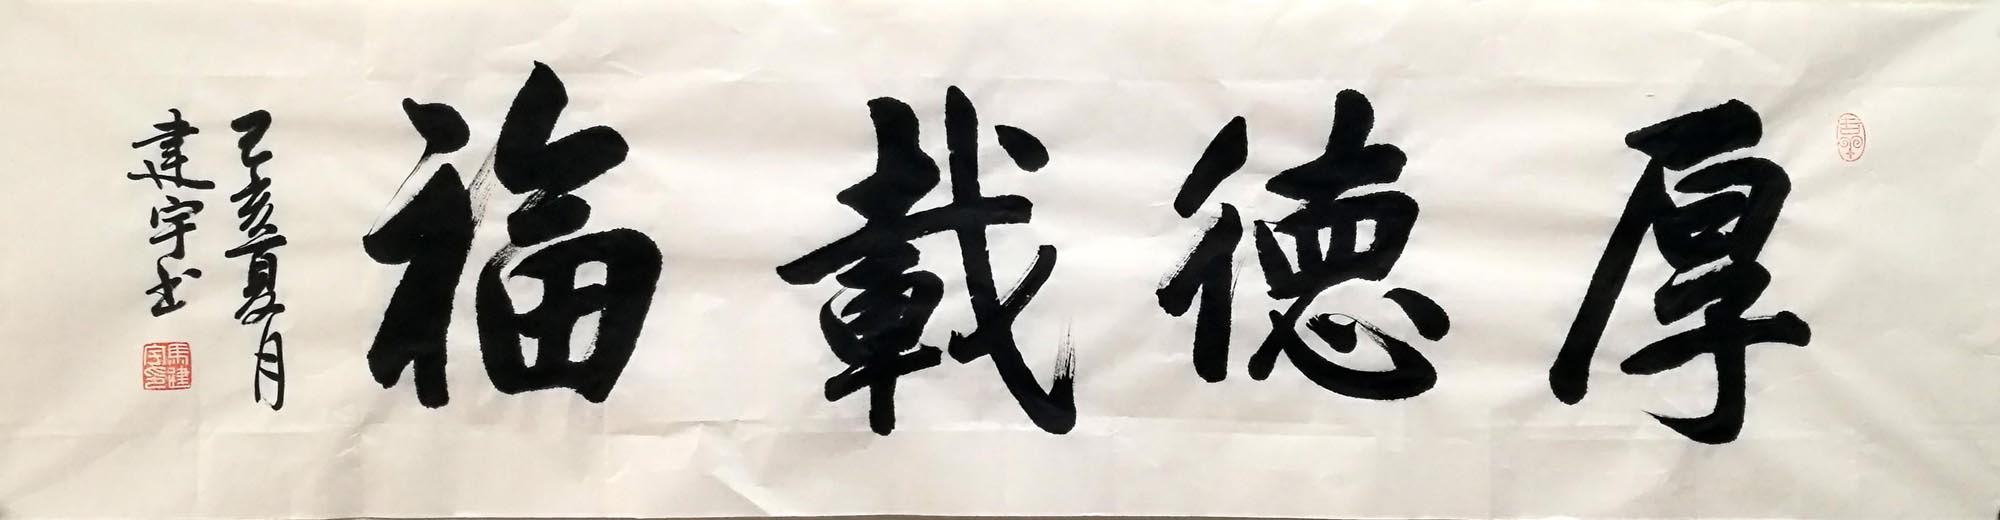 厚德載福
己亥夏月
建宇书
馬建宇印